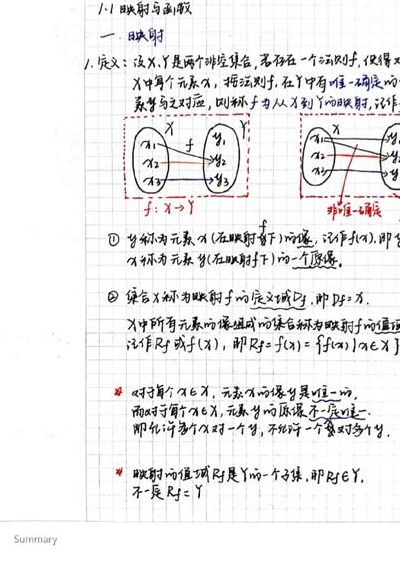 1.1 映射与函数
一. 映射
1. 定义：设X,Y是两个非空集合，若存在一个法则f，使得对
X中每个元素x，按法则f，在Y中有唯一确定的
素y与之对应，则称f为从X到Y的映射，记作
X Y X
x₁ f y₁ x₁
x₂ y₂ x₂
x₃ y₃ x₃
f：X→Y 非唯一确定
① y称为元素x(在映射f下)的像，记作f(x)，即
x称为元素y(在映射f下)的一个原像。
② 集合X称为映射f的定义域Df，即Df=X.
X中所有元素的像组成的集合称为映射f的值域
记作Rf或f(X)，即Rf=f(X)={f(x)|x∈X}
* 对于每个x∈X，元素x的像y是唯一的，
而对于每个x∈X，元素y的原像不一定唯一.
即允许多个x对一个y，不允许一个x对多个y.
* 映射的值域Rf是Y的一个子集，即Rf∈Y，
不一定Rf=Y
Summary